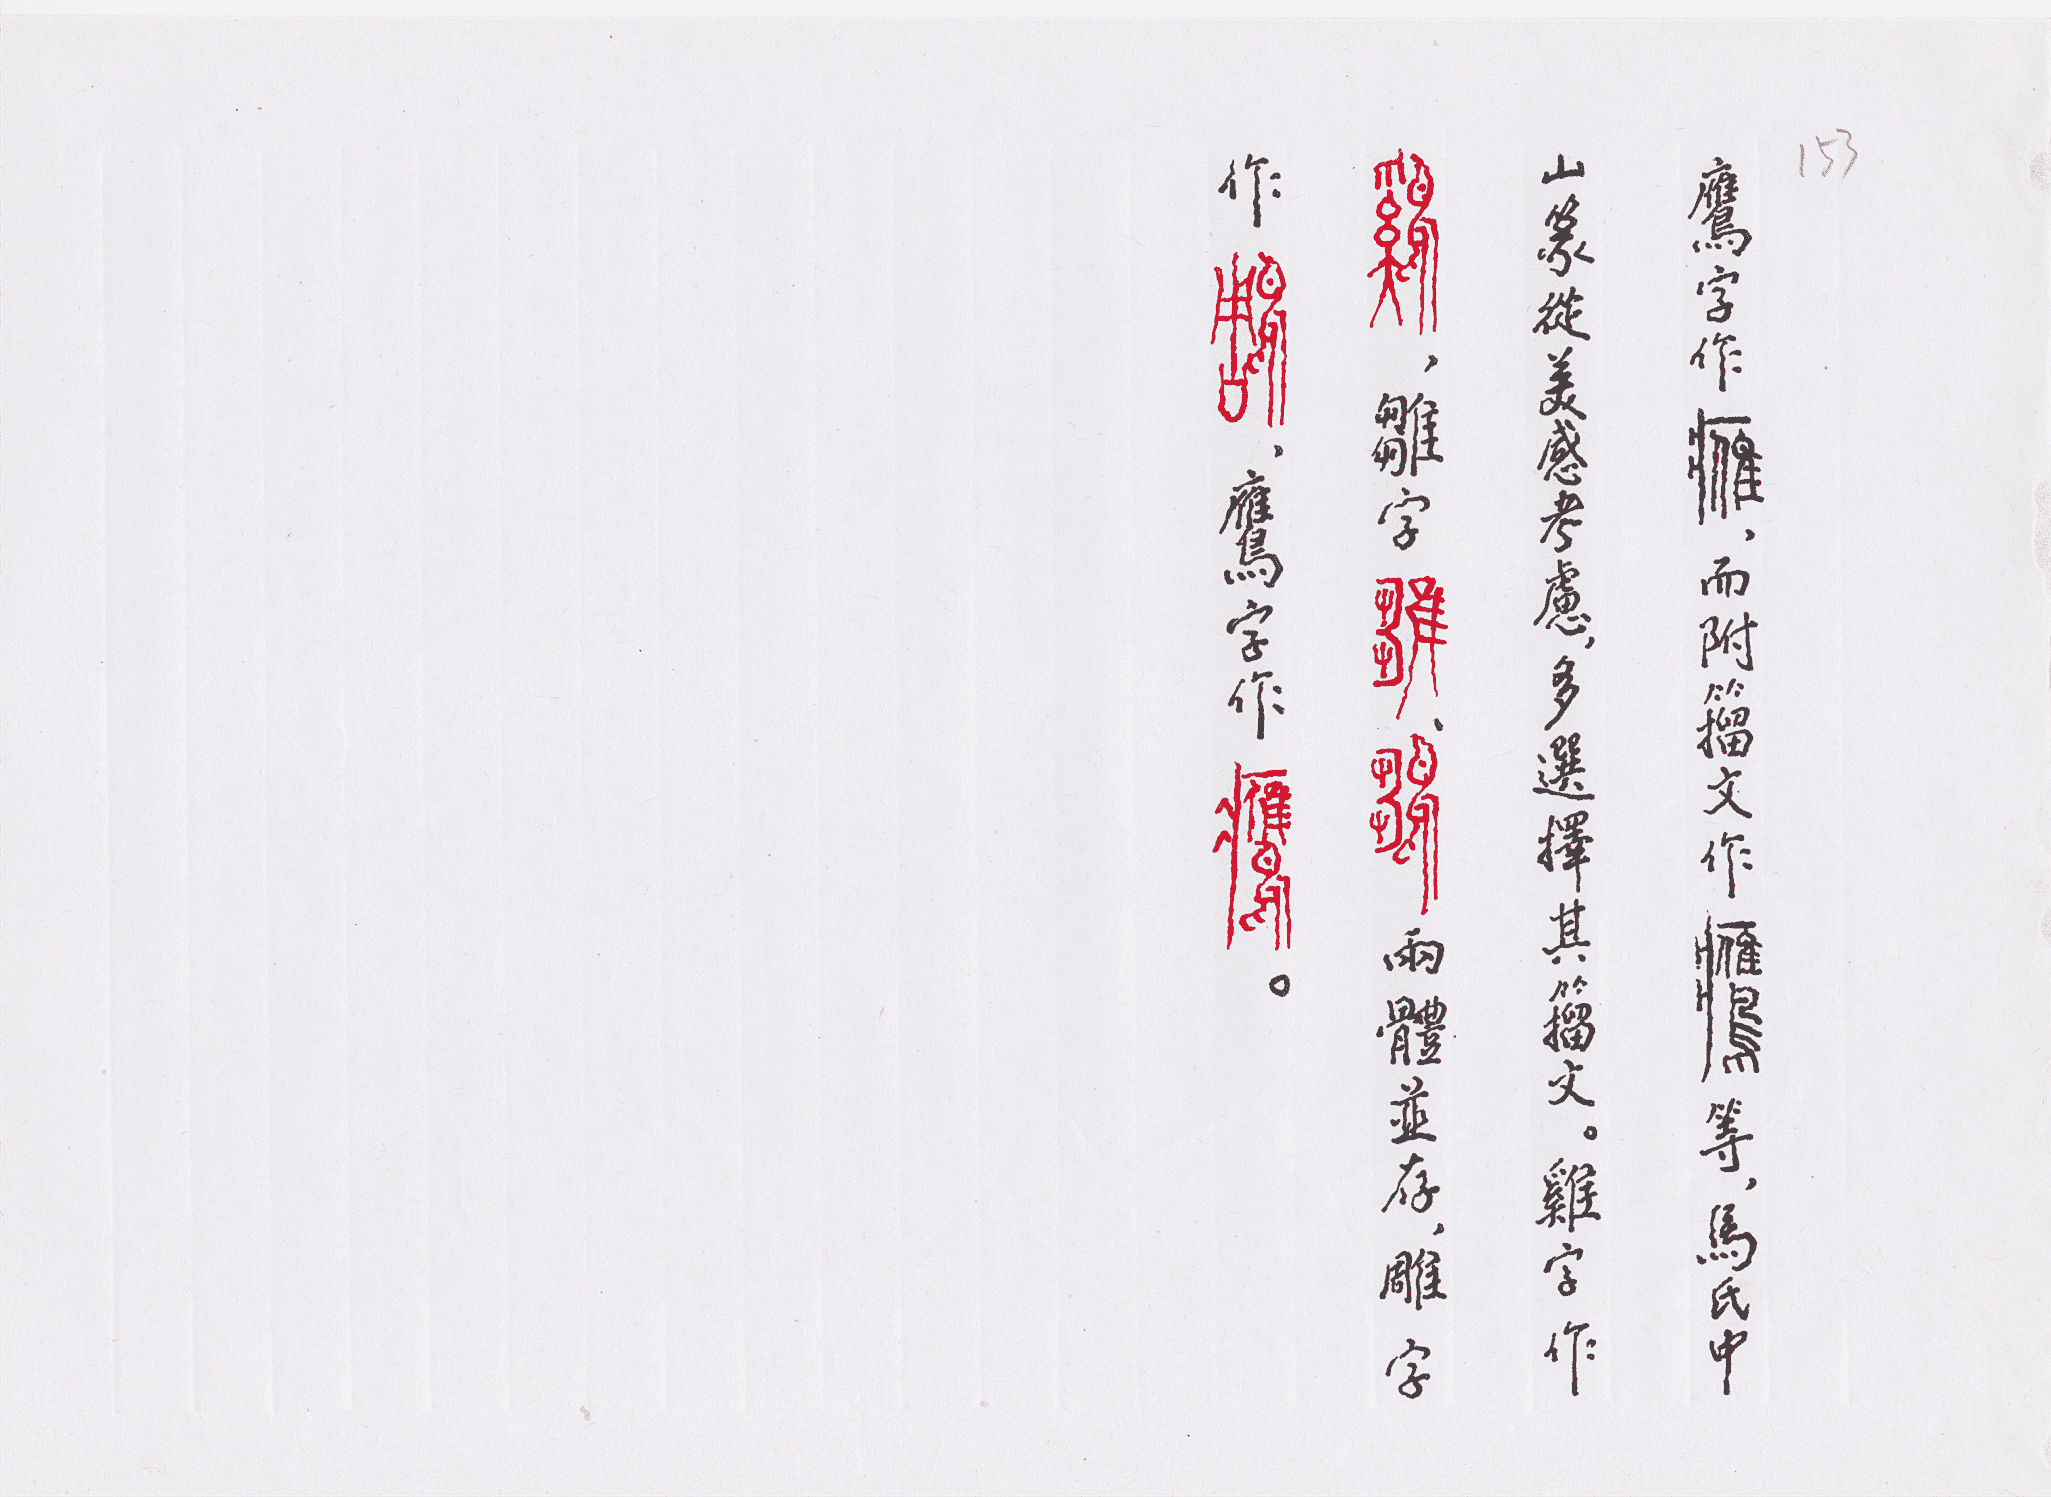 153
鷹字作𤸰，而附籕文作鷹等，馬氏中
山篆從美感考慮，多選擇其籕文。雞字作
鷄，雛字雛、鶵兩體並存，雕字
作鵰，鷹字作鷹。